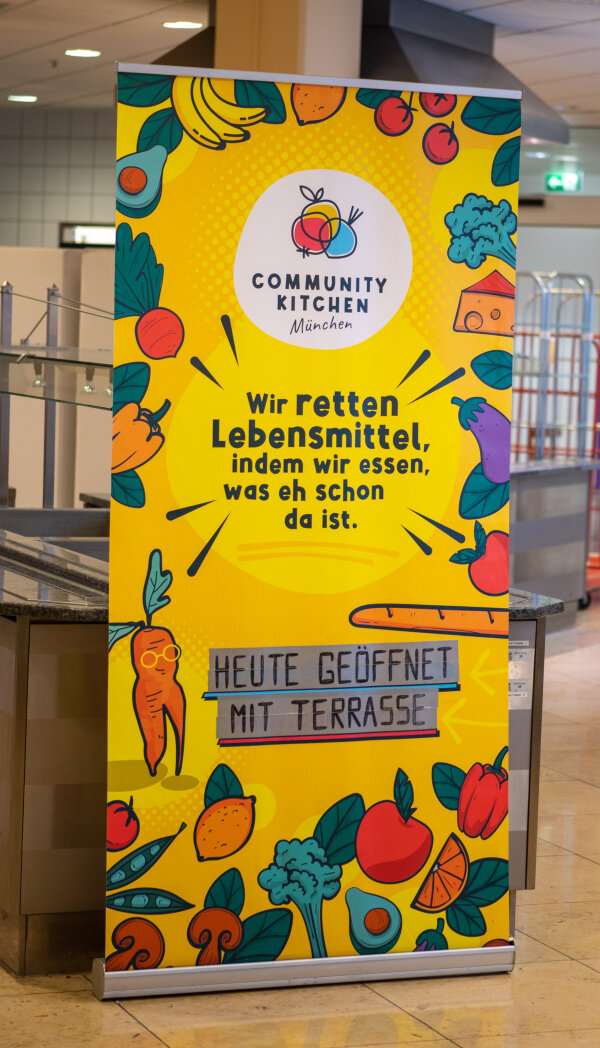 COMMUNITY
KITCHEN
München
Wir retten
Lebensmittel,
indem wir essen,
was eh schon
da ist.
HEUTE GEÖFFNET
MIT TERRASSE